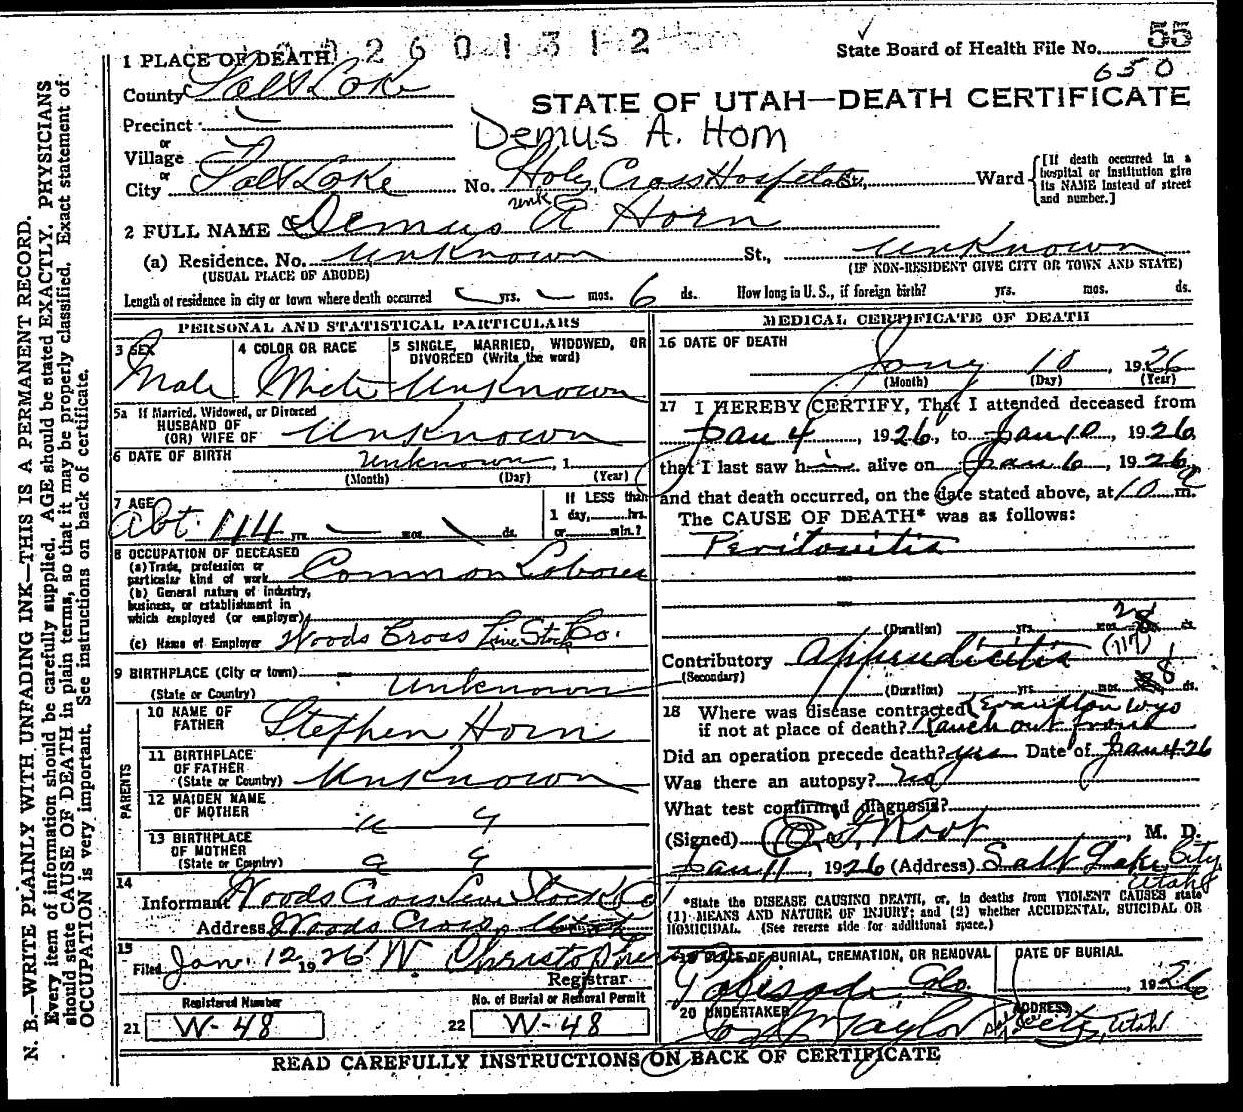 2601312
1 PLACE OF DEATH
State Board of Health File No. 55
650
County Salt Lake
STATE OF UTAH—DEATH CERTIFICATE
Precinct
Demus A. Horn
or
Village
or
City Salt Lake No. Holy Cross Hospital St., Ward
[If death occurred in a hospital or institution give its NAME instead of street and number.]
unk
2 FULL NAME Demus A Horn
(a) Residence. No. Unknown St., Unknown
(USUAL PLACE OF ABODE) (IF NON-RESIDENT GIVE CITY OR TOWN AND STATE)
Length of residence in city or town where death occurred — yrs. — mos. 6 ds. How long in U. S., if foreign birth? yrs. mos. ds.
PERSONAL AND STATISTICAL PARTICULARS
3 SEX 4 COLOR OR RACE 5 SINGLE, MARRIED, WIDOWED, OR DIVORCED (Write the word)
Male White Unknown
5a If Married, Widowed, or Divorced
HUSBAND OF
(OR) WIFE OF Unknown
6 DATE OF BIRTH Unknown, 1
(Month) (Day) (Year)
7 AGE If LESS than
1 day, hrs.
Abt. 44 yrs. — mos. ds. or min.?
8 OCCUPATION OF DECEASED
(a) Trade, profession or
particular kind of work Common Laborer
(b) General nature of industry,
business, or establishment in
which employed (or employer)
(c) Name of Employer Woods Cross Live Stock Co.
9 BIRTHPLACE (City or town)
(State or Country) Unknown
PARENTS
10 NAME OF
FATHER Stephen Horn
11 BIRTHPLACE
OF FATHER
(State or Country) Unknown
12 MAIDEN NAME
OF MOTHER
13 BIRTHPLACE
OF MOTHER
(State or Country)
14
Informant Woods Cross Live Stock Co
Address Woods Cross, Utah
15
Filed Jan. 12 1926 W Christopherson
Registrar.
Registered Number No. of Burial or Removal Permit
21 W-48 22 W-48
MEDICAL CERTIFICATE OF DEATH
16 DATE OF DEATH
Jany 10, 1926
(Month) (Day) (Year)
17 I HEREBY CERTIFY, That I attended deceased from
Jan 4, 1926, to Jan 10, 1926
that I last saw him alive on Jan 6, 1926
and that death occurred, on the date stated above, at 10 a m.
The CAUSE OF DEATH* was as follows:
Peritonitis
(Duration) yrs. mos. ds.
Contributory Appendicitis (117)
(Secondary)
(Duration) yrs. mos. 8 ds.
18 Where was disease contracted Evanston Wyo
if not at place of death? Ranch out from
Did an operation precede death? yes Date of Jan 4 26
Was there an autopsy? no
What test confirmed diagnosis?
(Signed) Root, M. D.
Jan 11, 1926 (Address) Salt Lake City
Utah
*State the DISEASE CAUSING DEATH, or, in deaths from VIOLENT CAUSES state
(1) MEANS AND NATURE OF INJURY; and (2) whether ACCIDENTAL, SUICIDAL OR
HOMICIDAL. (See reverse side for additional space.)
19 PLACE OF BURIAL, CREMATION, OR REMOVAL DATE OF BURIAL
Palisade, Colo. , 1926
20 UNDERTAKER ADDRESS
Taylor Salt Lake City, Utah
READ CAREFULLY INSTRUCTIONS ON BACK OF CERTIFICATE
N. B.—WRITE PLAINLY WITH UNFADING INK—THIS IS A PERMANENT RECORD.
Every item of information should be carefully supplied. AGE should be stated EXACTLY. PHYSICIANS
should state CAUSE OF DEATH in plain terms, so that it may be properly classified. Exact statement of
OCCUPATION is very important. See instructions on back of certificate.